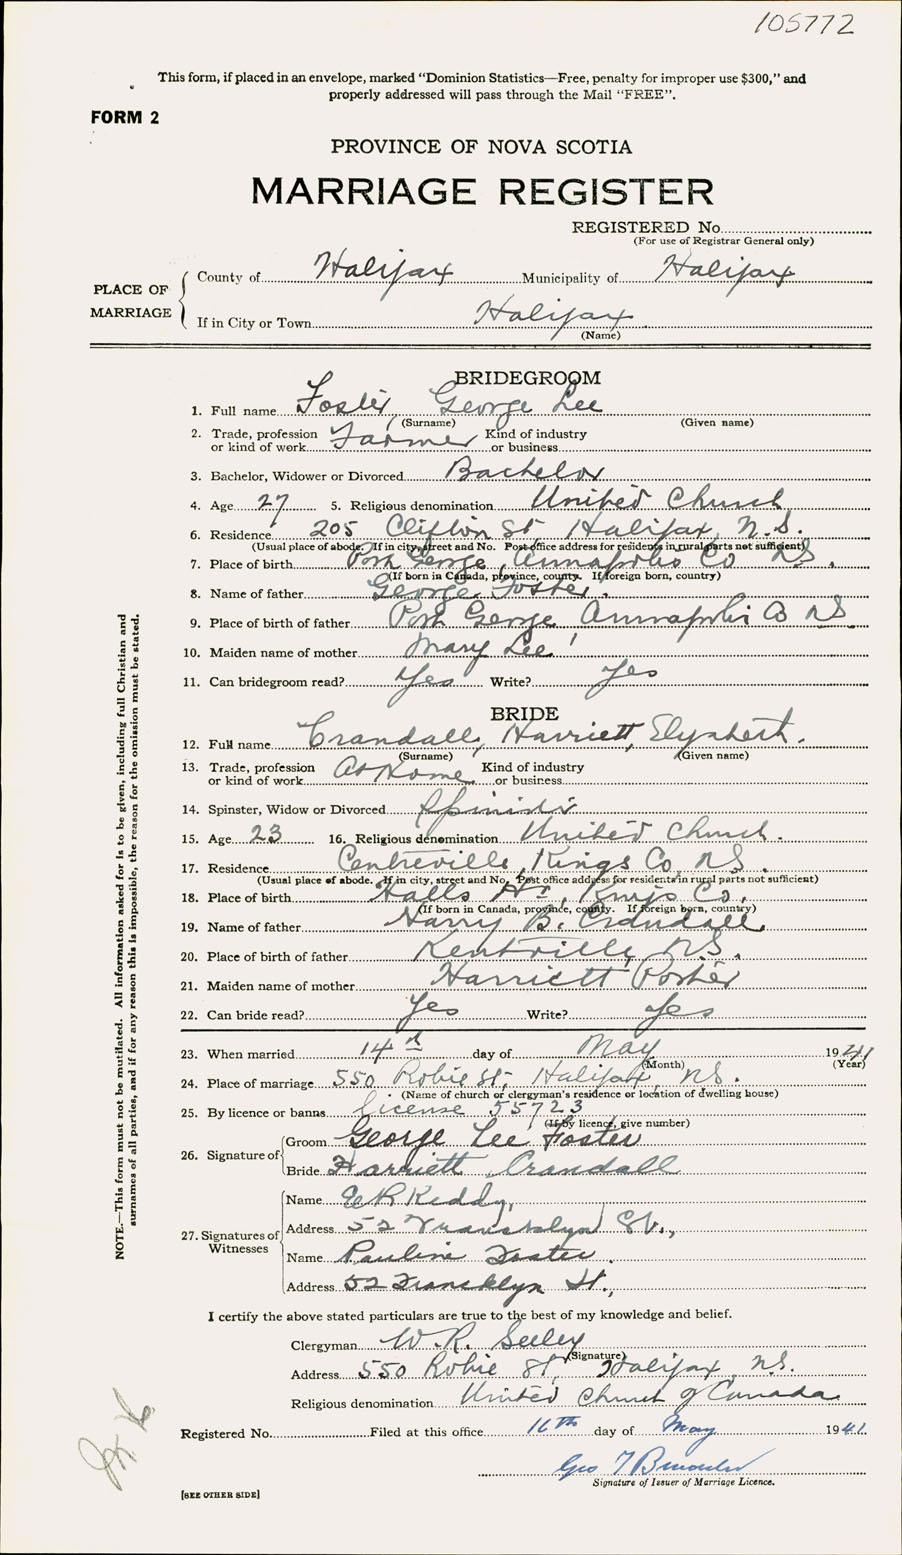 105772
This form, if placed in an envelope, marked “Dominion Statistics—Free, penalty for improper use $300,” and
properly addressed will pass through the Mail “FREE”.
FORM 2
PROVINCE OF NOVA SCOTIA
MARRIAGE REGISTER
REGISTERED No.
(For use of Registrar General only)
PLACE OF MARRIAGE
County of Halifax Municipality of Halifax
If in City or Town Halifax
(Name)
BRIDEGROOM
1. Full name Foster, George Lee
(Surname) (Given name)
2. Trade, profession or kind of work Farmer Kind of industry or business
3. Bachelor, Widower or Divorced Bachelor
4. Age 27 5. Religious denomination United Church
6. Residence 205 Clifton St Halifax, N.S.
(Usual place of abode. If in city, street and No. Post office address for residents in rural parts not sufficient)
7. Place of birth Port George, Annapolis Co NS.
(If born in Canada, province, county. If foreign born, country)
8. Name of father George Foster.
9. Place of birth of father Port George Annapolis Co NS
10. Maiden name of mother Mary Lee
11. Can bridegroom read? Yes Write? Yes
BRIDE
12. Full name Crandall, Harriett, Elyzabeth.
(Surname) (Given name)
13. Trade, profession or kind of work At Home Kind of industry or business
14. Spinster, Widow or Divorced Spinster
15. Age 23 16. Religious denomination United Church.
17. Residence Centreville, Kings Co NS
(Usual place of abode. If in city, street and No. Post office address for residents in rural parts not sufficient)
18. Place of birth Halls Hr, Kings Co.
(If born in Canada, province, county. If foreign born, country)
19. Name of father Harry B. Crandall.
20. Place of birth of father Kentville, NS.
21. Maiden name of mother Harriett Porter
22. Can bride read? Yes Write? Yes
23. When married 14th day of May 1941
(Month) (Year)
24. Place of marriage 550 Robie St, Halifax, NS.
(Name of church or clergyman's residence or location of dwelling house)
25. By licence or banns License 55723
(If by licence, give number)
26. Signature of
Groom George Lee Foster
Bride Harriett Crandall
27. Signatures of Witnesses
Name Keddy,
Address 52 St.,
Name Pauline Foster.
Address 52 Francklyn St.,
I certify the above stated particulars are true to the best of my knowledge and belief.
Clergyman W.R. Seeley
(Signature)
Address 550 Robie St, Halifax, NS.
Religious denomination United Church of Canada
Registered No. Filed at this office 16th day of May 1941
Geo T
Signature of Issuer of Marriage Licence.
[SEE OTHER SIDE]
NOTE.—This form must not be mutilated. All information asked for is to be given, including full Christian and
surnames of all parties, and if for any reason this is impossible, the reason for the omission must be stated.